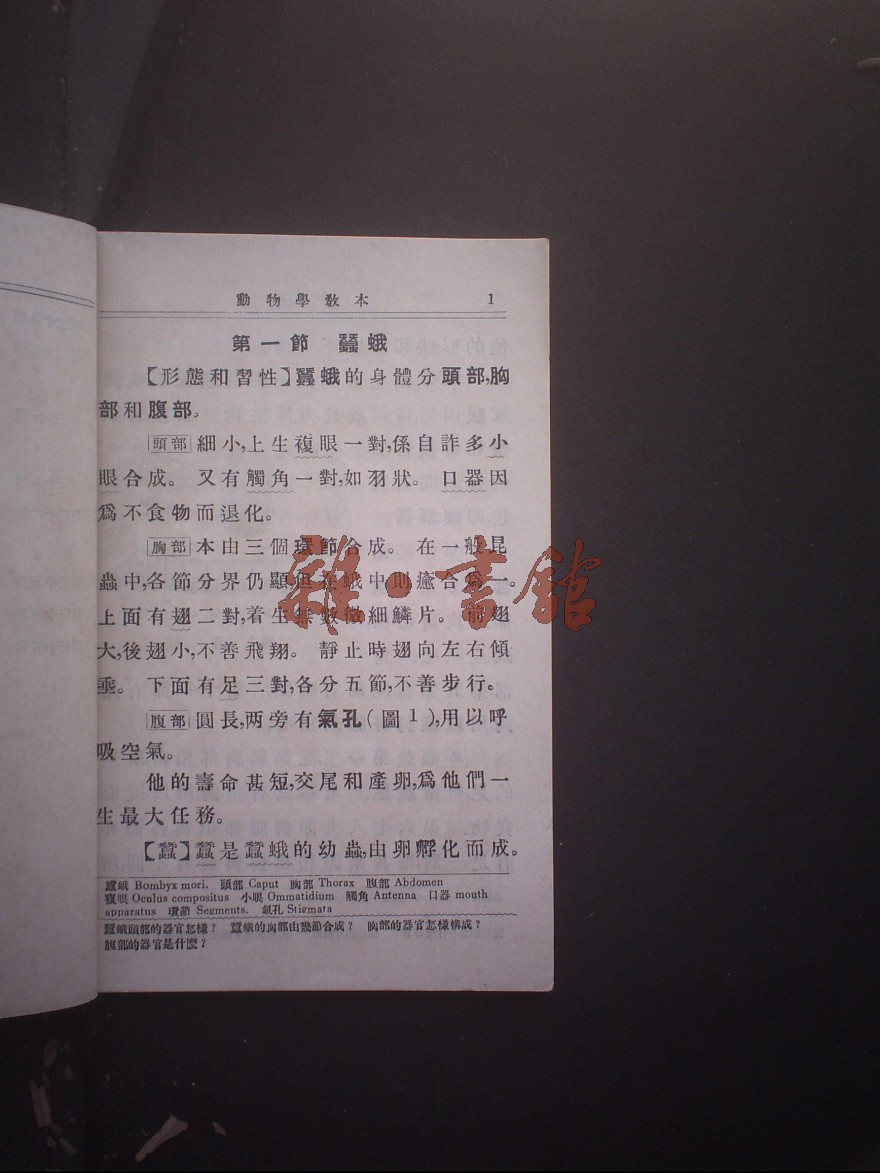 動物學教本 1
第一節 蠶蛾
【形態和習性】蠶蛾的身體分頭部,胸
部和腹部。
頭部 細小,上生複眼一對,係自許多小
眼合成。 又有觸角一對,如羽狀。 口器因
爲不食物而退化。
胸部 本由三個環節合成。 在一般昆
蟲中,各節分界仍顯,但在蛾中則癒合爲一。
上面有翅二對,着生無數微細鱗片。 前翅
大,後翅小,不善飛翔。 靜止時翅向左右傾
垂。 下面有足三對,各分五節,不善步行。
腹部 圓長,两旁有氣孔(圖1),用以呼
吸空氣。
他的壽命甚短,交尾和產卵,爲他們一
生最大任務。
【蠶】蠶是蠶蛾的幼蟲,由卵孵化而成。
蠶蛾 Bombyx mori. 頭部 Caput 胸部 Thorax 腹部 Abdomen
複眼 Oculus compositus 小眼 Ommatidium 觸角 Antenna 口器 mouth
apparatus 環節 Segments. 氣孔 Stigmata
蠶蛾頭部的器官怎樣? 蠶蛾的胸部由幾節合成? 胸部的器官怎樣構成?
腹部的器官是什麼?
雜·書館